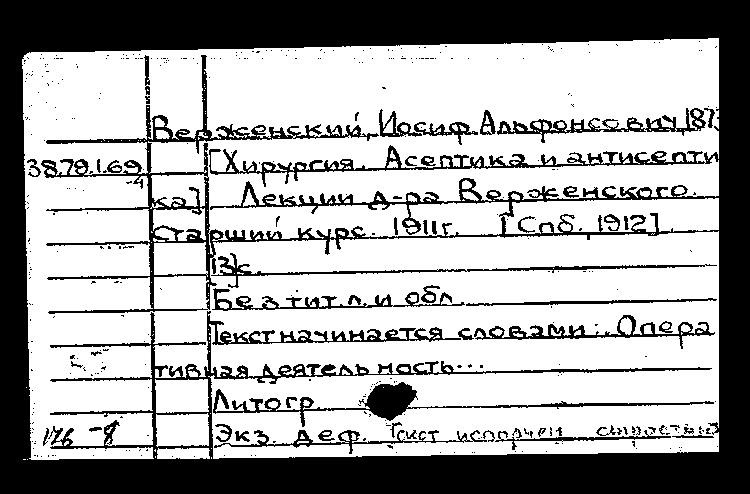 Верженский, Иосиф Альфонсович, 187
38.79.1.69 [Хирургия. Асептика и антисепти
-4
ка] Лекции д-ра Верженского.
Старший курс. 1911г. [Спб., 1912]
13]с.
Без тит.л. и обл.
Текст начинается словами: Опера
тивная деятельность...
Литогр.
176 -8 Экз. деф. Текст испорчен сыростью